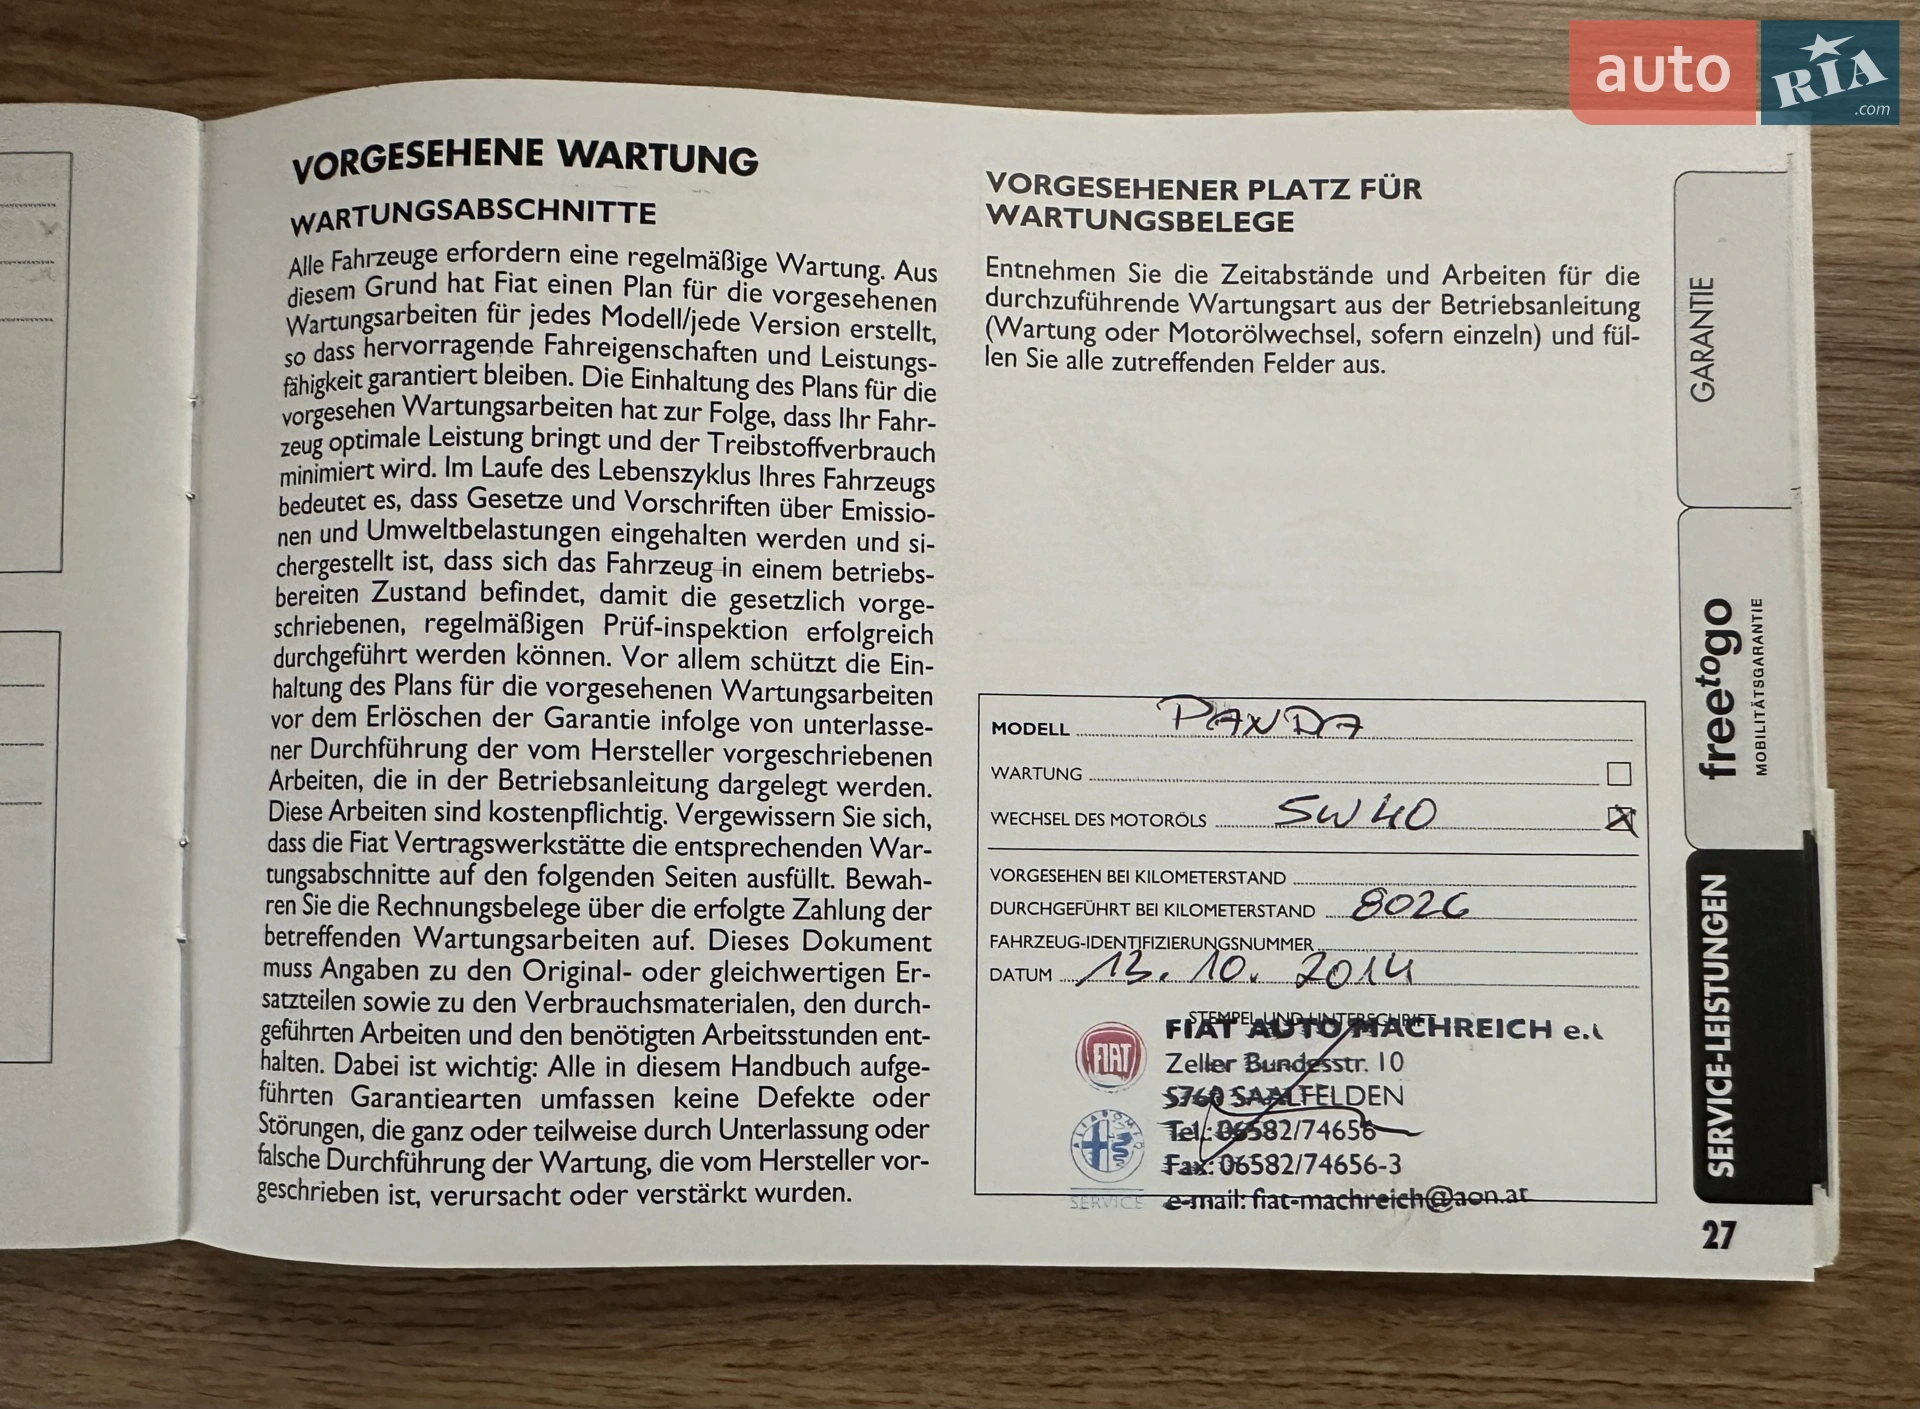 auto
RIA
.com
VORGESEHENE WARTUNG
WARTUNGSABSCHNITTE
Alle Fahrzeuge erfordern eine regelmäßige Wartung. Aus
diesem Grund hat Fiat einen Plan für die vorgesehenen
Wartungsarbeiten für jedes Modell/jede Version erstellt,
so dass hervorragende Fahreigenschaften und Leistungs-
fähigkeit garantiert bleiben. Die Einhaltung des Plans für die
vorgesehen Wartungsarbeiten hat zur Folge, dass Ihr Fahr-
zeug optimale Leistung bringt und der Treibstoffverbrauch
minimiert wird. Im Laufe des Lebenszyklus Ihres Fahrzeugs
bedeutet es, dass Gesetze und Vorschriften über Emissio-
nen und Umweltbelastungen eingehalten werden und si-
chergestellt ist, dass sich das Fahrzeug in einem betriebs-
bereiten Zustand befindet, damit die gesetzlich vorge-
schriebenen, regelmäßigen Prüf-inspektion erfolgreich
durchgeführt werden können. Vor allem schützt die Ein-
haltung des Plans für die vorgesehenen Wartungsarbeiten
vor dem Erlöschen der Garantie infolge von unterlasse-
ner Durchführung der vom Hersteller vorgeschriebenen
Arbeiten, die in der Betriebsanleitung dargelegt werden.
Diese Arbeiten sind kostenpflichtig. Vergewissern Sie sich,
dass die Fiat Vertragswerkstätte die entsprechenden War-
tungsabschnitte auf den folgenden Seiten ausfüllt. Bewah-
ren Sie die Rechnungsbelege über die erfolgte Zahlung der
betreffenden Wartungsarbeiten auf. Dieses Dokument
muss Angaben zu den Original- oder gleichwertigen Er-
satzteilen sowie zu den Verbrauchsmaterialen, den durch-
geführten Arbeiten und den benötigten Arbeitsstunden ent-
halten. Dabei ist wichtig: Alle in diesem Handbuch aufge-
führten Garantiearten umfassen keine Defekte oder
Störungen, die ganz oder teilweise durch Unterlassung oder
falsche Durchführung der Wartung, die vom Hersteller vor-
geschrieben ist, verursacht oder verstärkt wurden.
VORGESEHENER PLATZ FÜR
WARTUNGSBELEGE
Entnehmen Sie die Zeitabstände und Arbeiten für die
durchzuführende Wartungsart aus der Betriebsanleitung
(Wartung oder Motorölwechsel, sofern einzeln) und fül-
len Sie alle zutreffenden Felder aus.
MODELL PANDA
WARTUNG
WECHSEL DES MOTORÖLS 5W40
VORGESEHEN BEI KILOMETERSTAND
DURCHGEFÜHRT BEI KILOMETERSTAND 8026
FAHRZEUG-IDENTIFIZIERUNGSNUMMER
DATUM 13.10.2014
STEMPEL UND UNTERSCHRIFT
FIAT AUTO MACHREICH e.
Zeller Bundesstr. 10
5760 SAALFELDEN
Tel.: 06582/74656
Fax: 06582/74656-3
e-mail: fiat-machreich@aon.at
FIAT
ALFA ROMEO
SERVICE
GARANTIE
freetogo
MOBILITÄTSGARANTIE
SERVICE-LEISTUNGEN
27